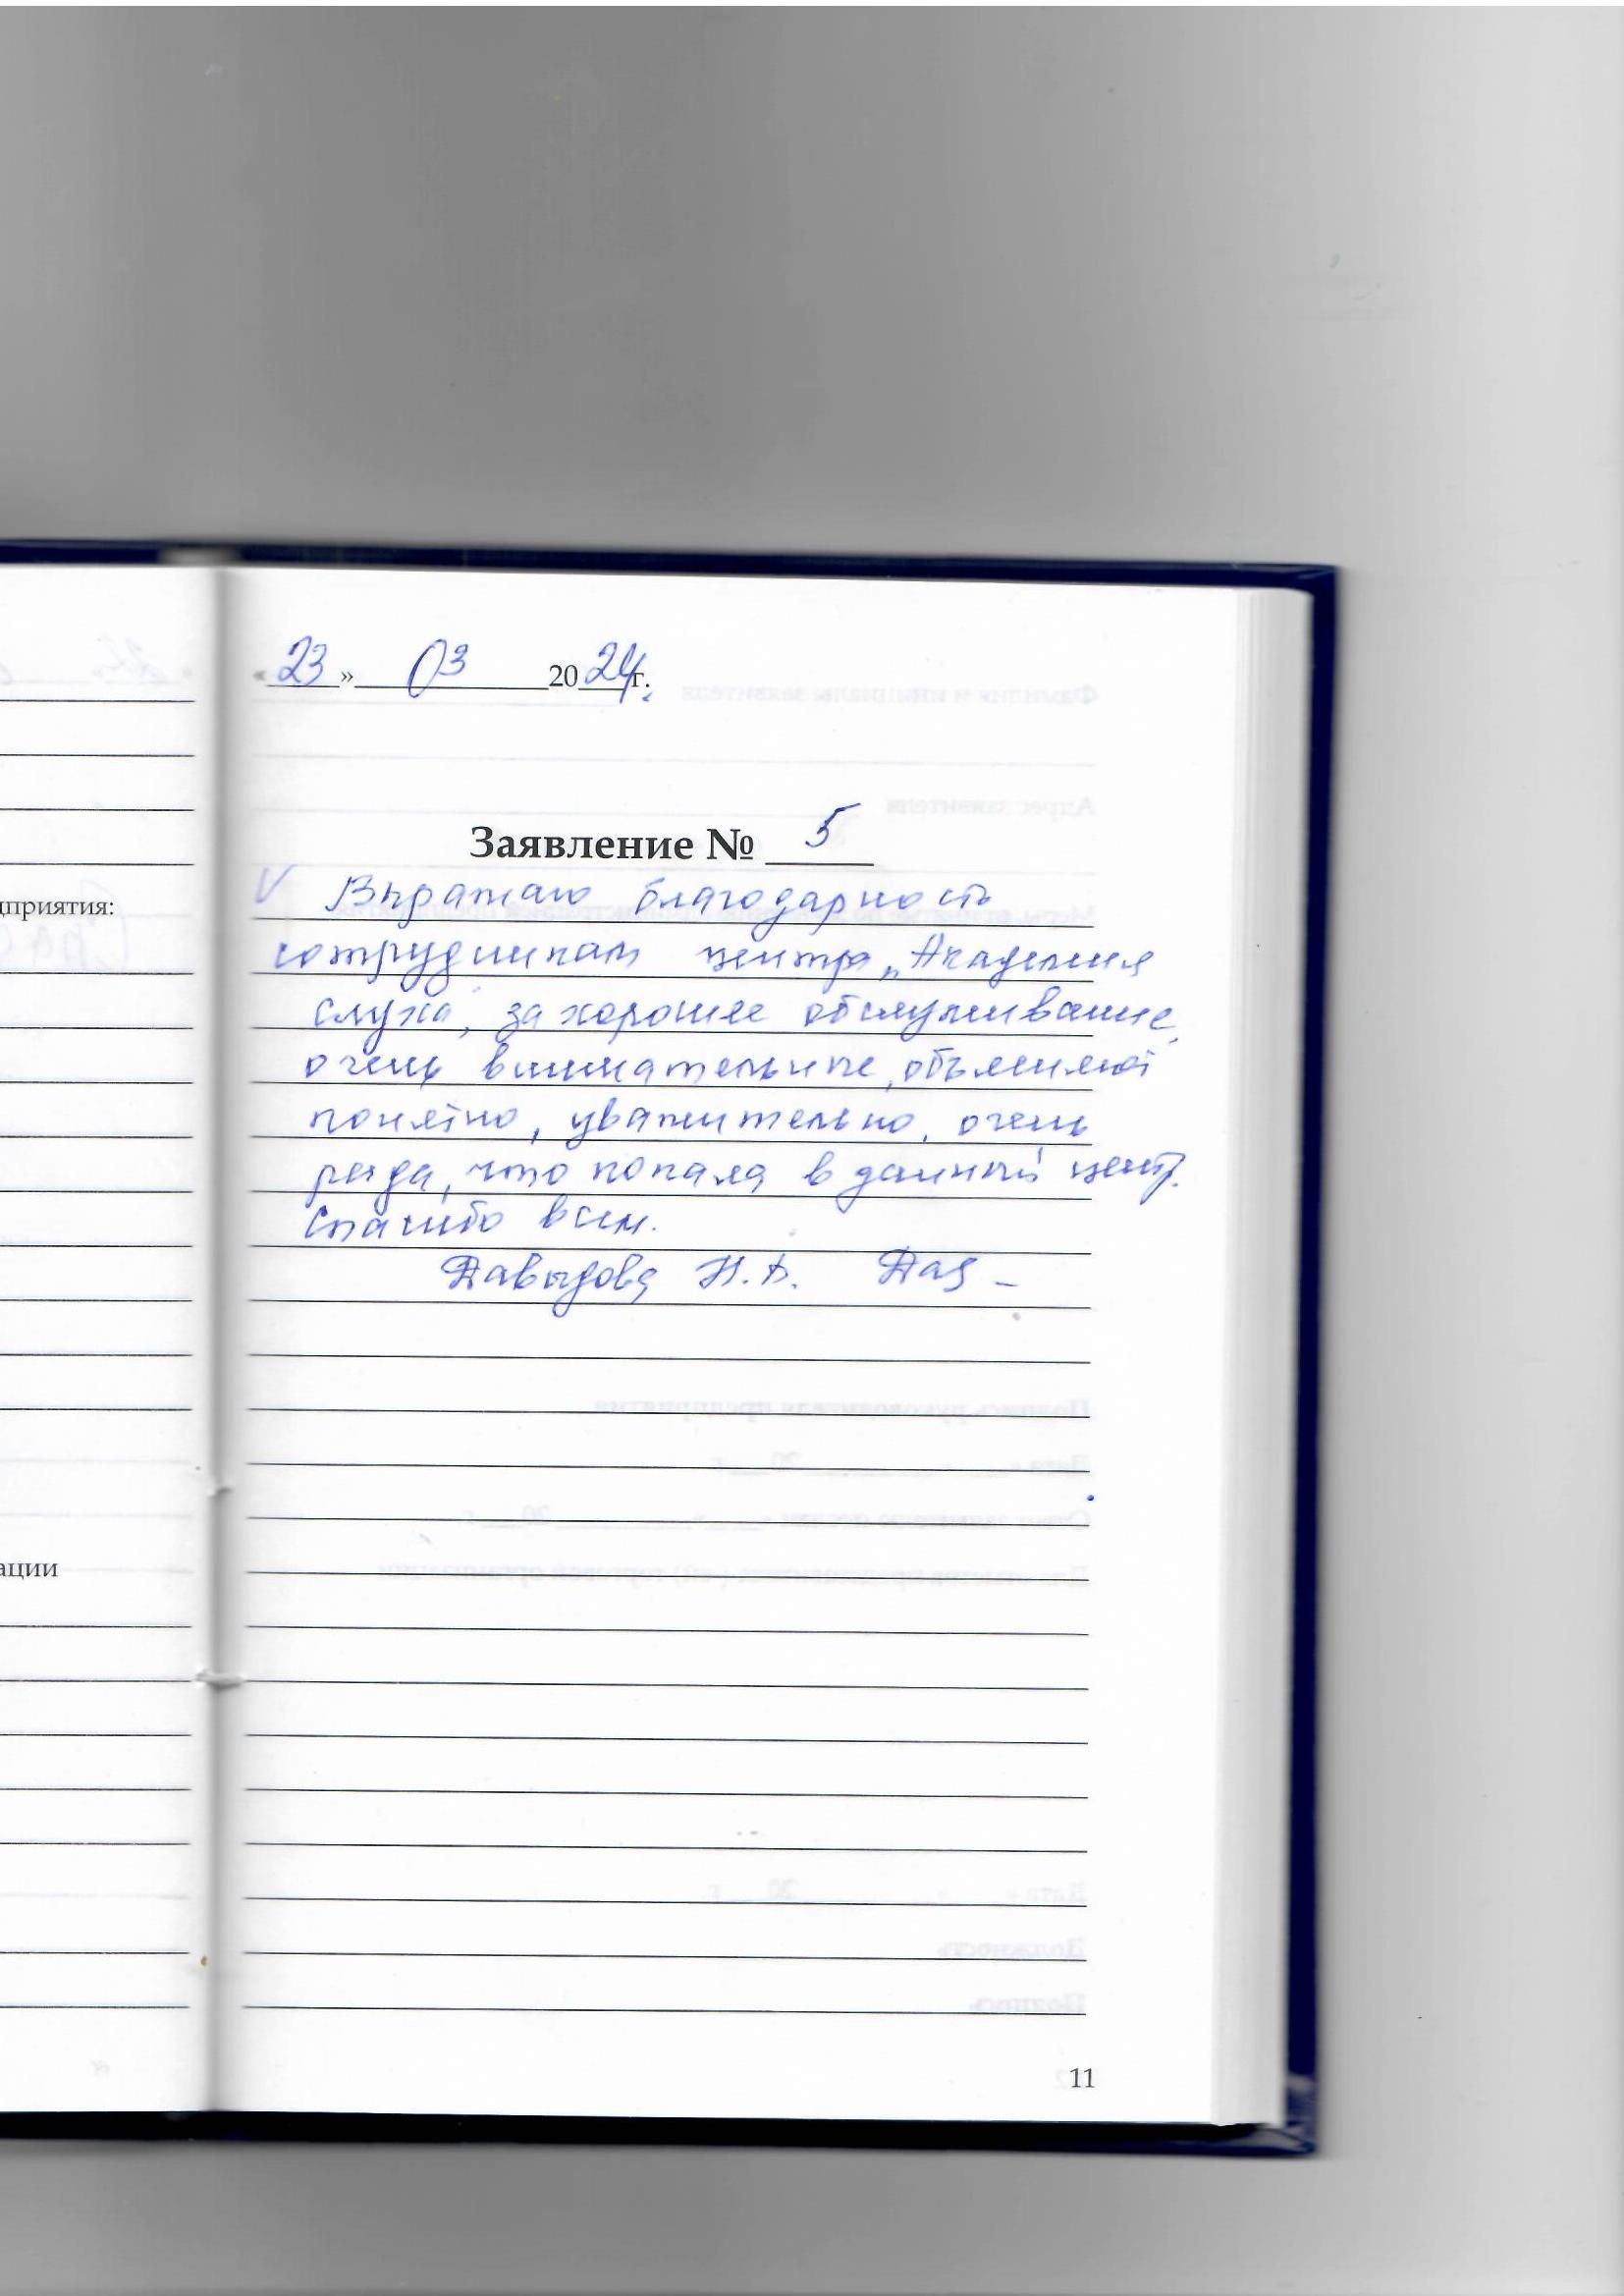 «23» 03 2024г.
Заявление № 5
V Выражаю благодарность
сотрудникам центра „Академия
слуха", за хорошее обслуживание,
очень внимательные, объясняют
понятно, уважительно, очень
рада, что попала в данный центр.
Спасибо всем.
Давыдова Н.В. Дав
дприятия:
ации
11